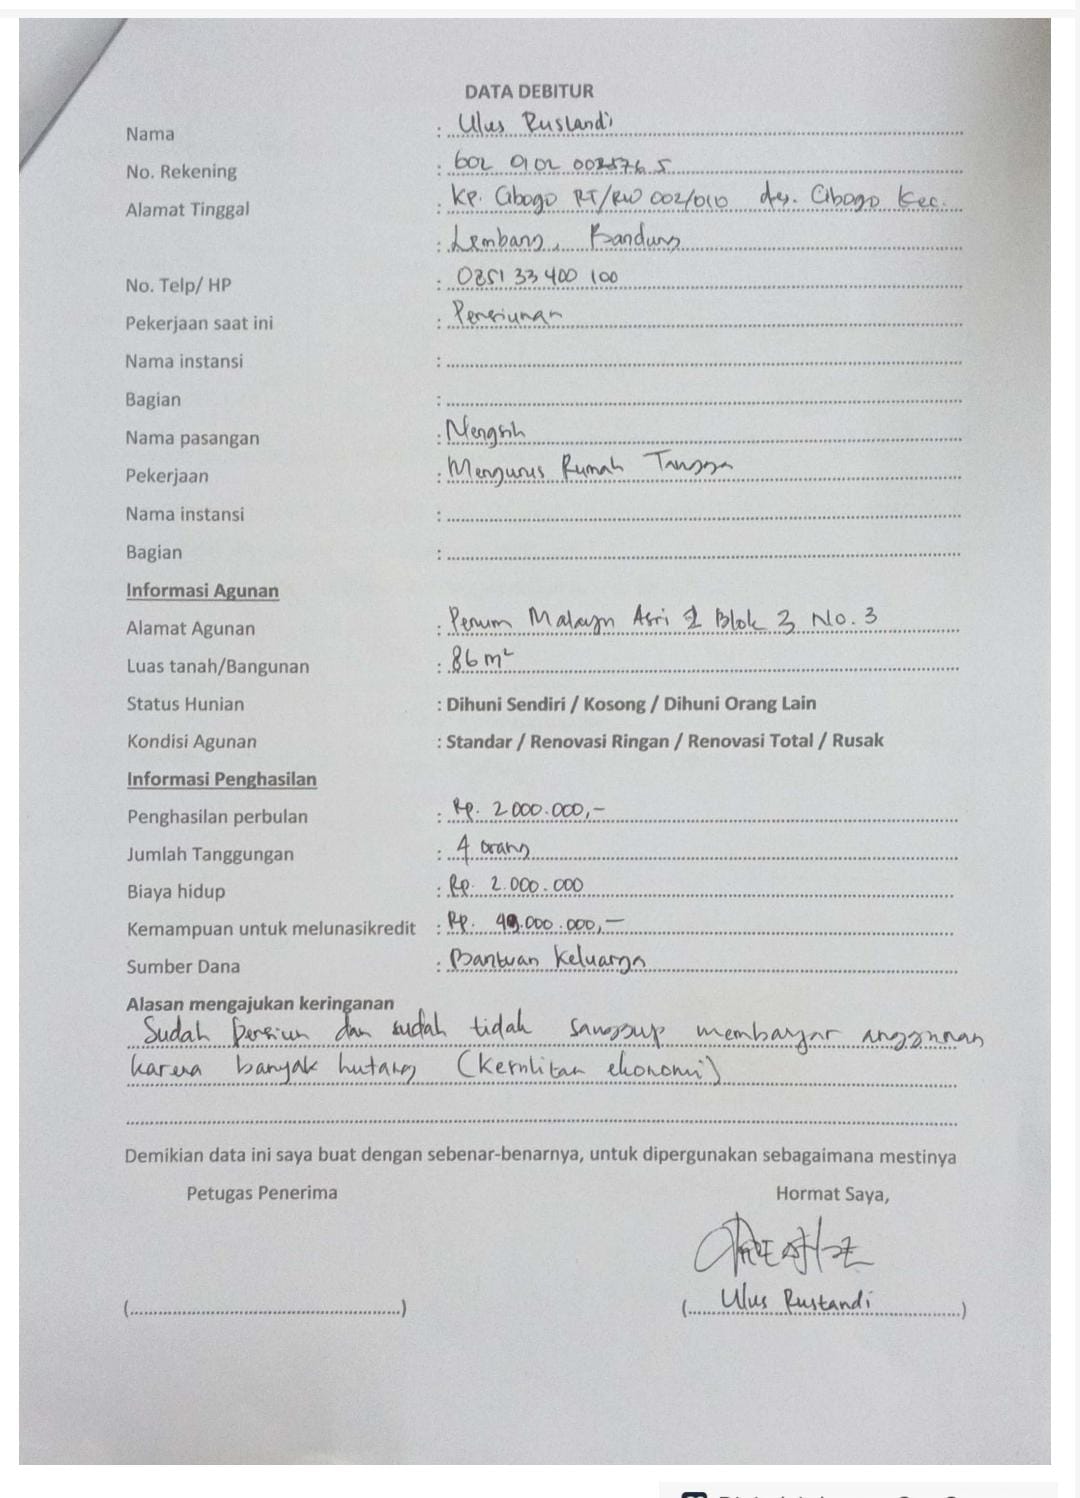 DATA DEBITUR
Nama : Ulus Rustandi
No. Rekening : 602 0102 002576 5
Alamat Tinggal : Kp. Cibogo RT/RW 002/010 ds. Cibogo Kec.
: Lembang, Bandung
No. Telp/ HP : 0851 33 400 100
Pekerjaan saat ini : Pensiunan
Nama instansi :
Bagian :
Nama pasangan : Nengsih
Pekerjaan : Mengurus Rumah Tangga
Nama instansi :
Bagian :
Informasi Agunan
Alamat Agunan : Perum Malayu Asri Blok 3 No. 3
Luas tanah/Bangunan : 86 m²
Status Hunian : Dihuni Sendiri / Kosong / Dihuni Orang Lain
Kondisi Agunan : Standar / Renovasi Ringan / Renovasi Total / Rusak
Informasi Penghasilan
Penghasilan perbulan : Rp. 2 000.000,-
Jumlah Tanggungan : 4 orang
Biaya hidup : Rp. 2.000.000
Kemampuan untuk melunasikredit : Rp. .000.000,-
Sumber Dana : Bantuan Keluarga
Alasan mengajukan keringanan
Sudah pensiun dan sudah tidak sanggup membayar angsuran
karena banyak hutang (Kesulitan ekonomi)
Demikian data ini saya buat dengan sebenar-benarnya, untuk dipergunakan sebagaimana mestinya
Petugas Penerima Hormat Saya,
(....................) (Ulus Rustandi)